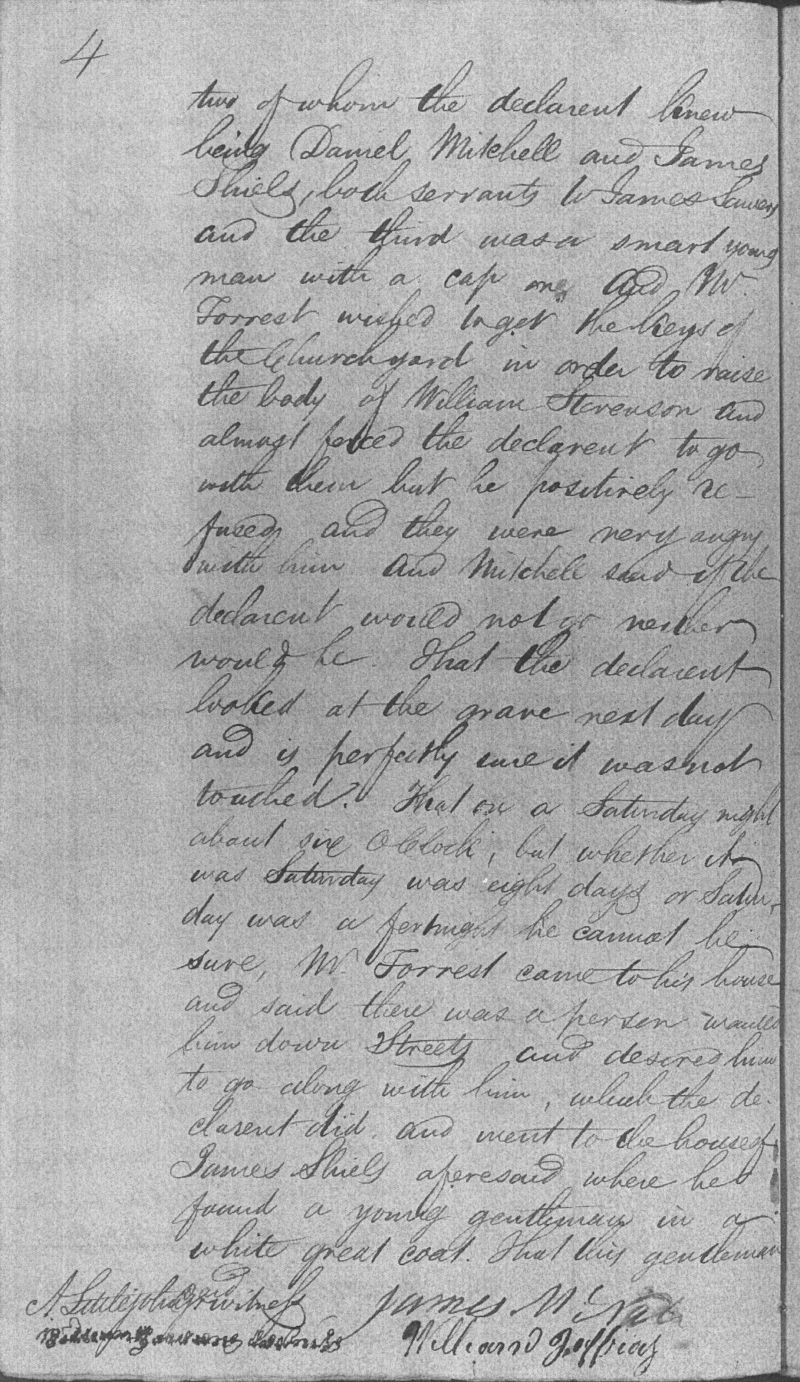 4
two of whom the declarent knew
being Daniel Mitchell and James
Shiels, both servants to James
and the third was a smart young
man with a cap on, and Mr.
Forrest wished to get the keys of
the Churchyard in order to raise
the body of William Stevenson and
almost forced the declarent to go
with them but he positively re-
fused and they were very angry
with him and Mitchell said if the
declarent would not go neither
would he. That the declarent
looked at the grave next day
and is perfectly sure it was not
touched. That on a Saturday night
about six O'Clock, but whether it
was Saturday was eight days or Satur-
day was a fortnight he cannot be
sure, Mr. Forrest came to his house
and said there was a person wanted
him down Streets and desired him
to go along with him, which the de-
clarent did and went to the house of
James Shiels aforesaid where he
found a young gentleman in a
white great coat. That this gentleman
A. Littlejohn witness James
William witness William Jeffray